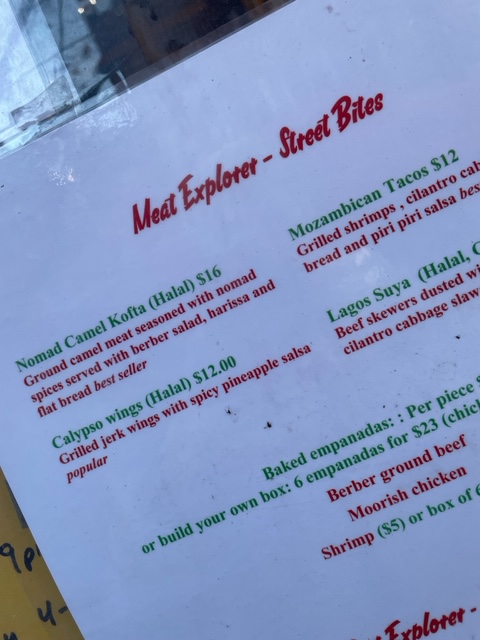 Meat Explorer - Street Bites
Nomad Camel Kofta (Halal) $16
Ground camel meat seasoned with nomad
spices served with berber salad, harissa and
flat bread best seller
Calypso wings (Halal) $12.00
Grilled jerk wings with spicy pineapple salsa
popular
Mozambican Tacos $12
Grilled shrimps , cilantro cab
bread and piri piri salsa bes
Lagos Suya (Halal,
Beef skewers dusted wi
cilantro cabbage slaw
Baked empanadas: : Per piece $
or build your own box: 6 empanadas for $23 (chic
Berber ground beef
Moorish chicken
Shrimp ($5) or box of 6
Explorer -
9p
4-